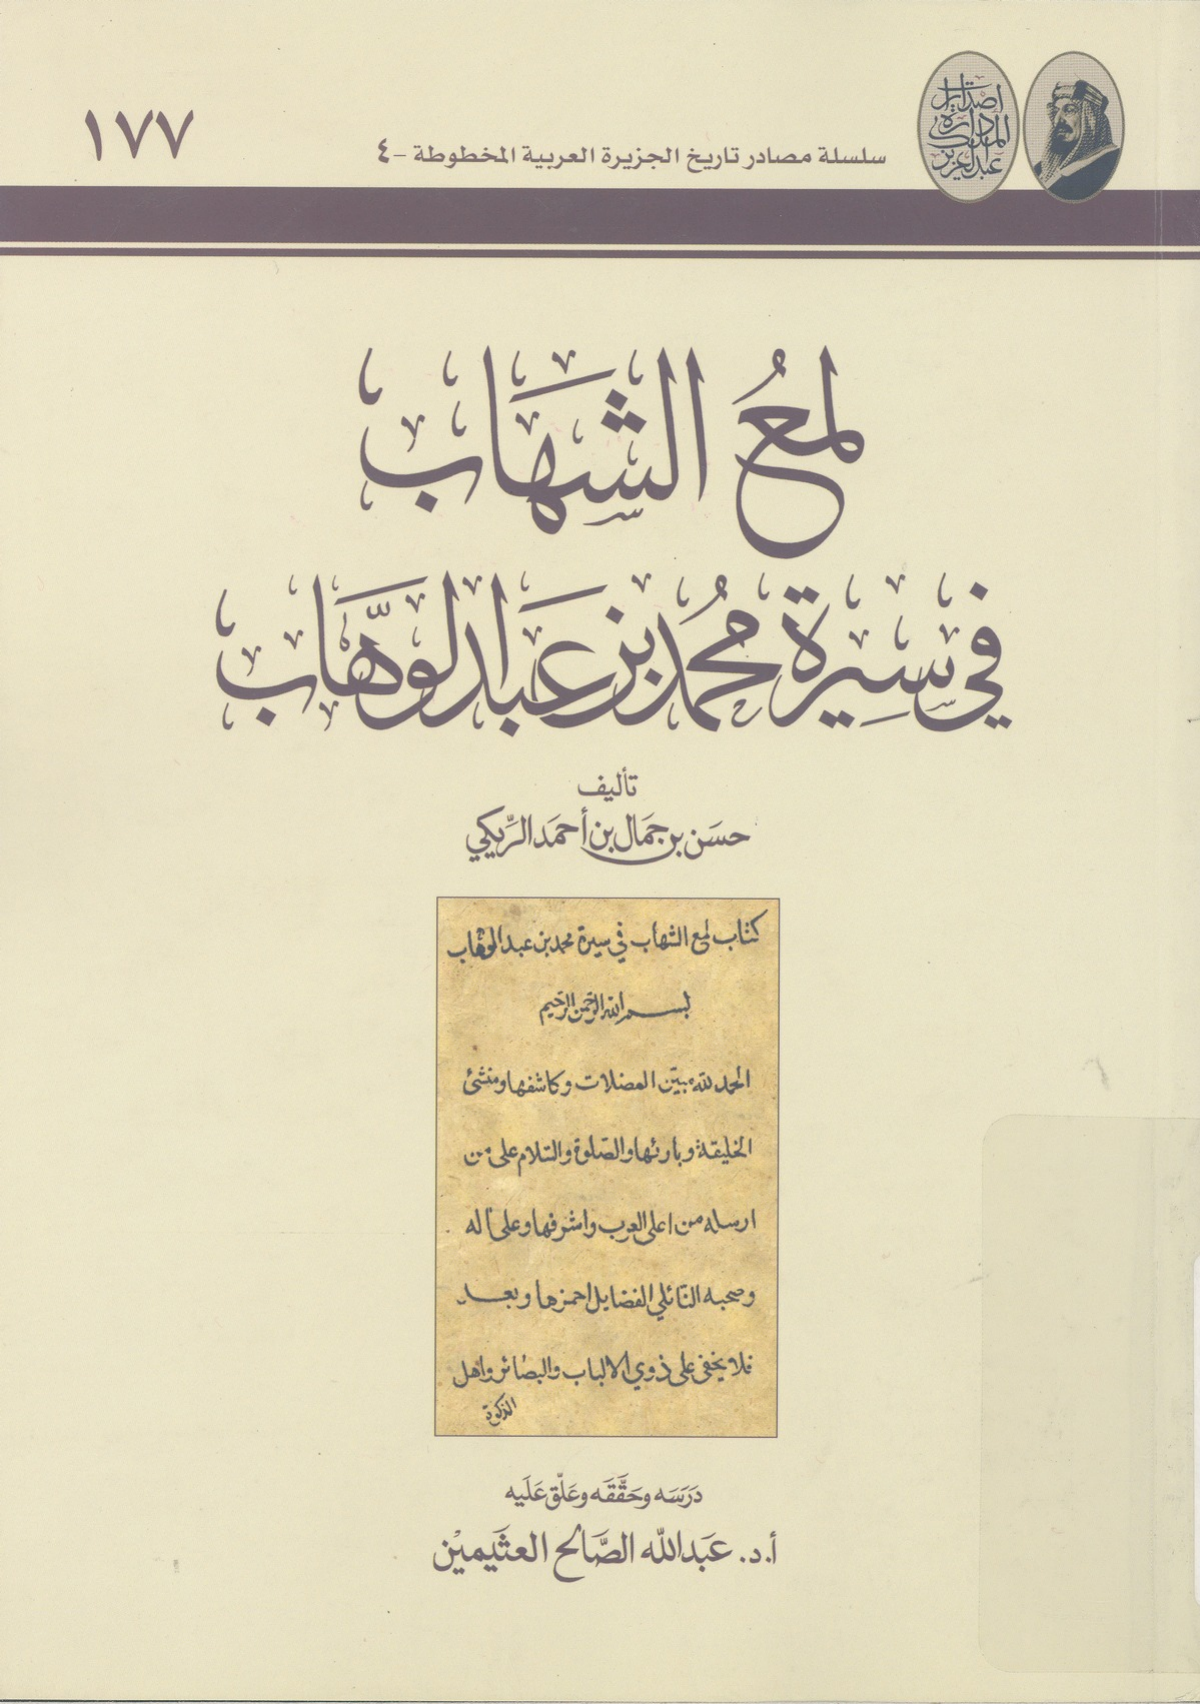 إصدارات
دارة
الملك
عبدالعزيز
سلسلة مصادر تاريخ الجزيرة العربية المخطوطة -٤
١٧٧
لمعُ الشهَاب
في سِيرة محمُد بن عَبدالوهَّاب
تأليف
حسَن بن جمَال بن أحمَد الرِّيكي
كتاب لمع الشهاب في سيرة محمد بن عبد الوهاب
بسم الله الرحمن الرحيم
الحمد لله مبيّن المعضلات وكاشفها ومنشئ
الخليقة وبارئها والصّلوة والسّلام على من
ارسله من اعلى العرب واشرفها وعلى آله
وصحبه النائلي الفضايل احمزها وبعد
فلا يخفى على ذوي الالباب والبصائر واهل
دَرَسَه وحَقَّقَه وعَلّق عَلَيه
أ.د. عَبدالله الصَّالح العثَيمين